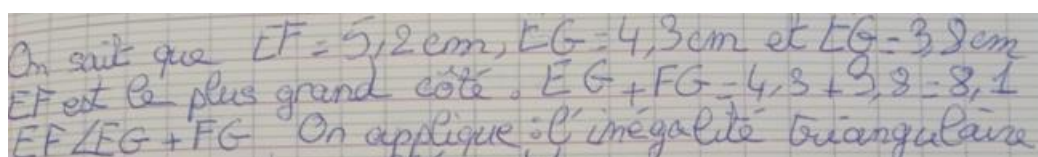 On sait que EF = 5,2cm, EG = 4,3cm et EG = 3,8cm
EF est le plus grand côté. EG + FG = 4,3 + 3,8 = 8,1
EF < EG + FG On applique : l'inégalité triangulaire